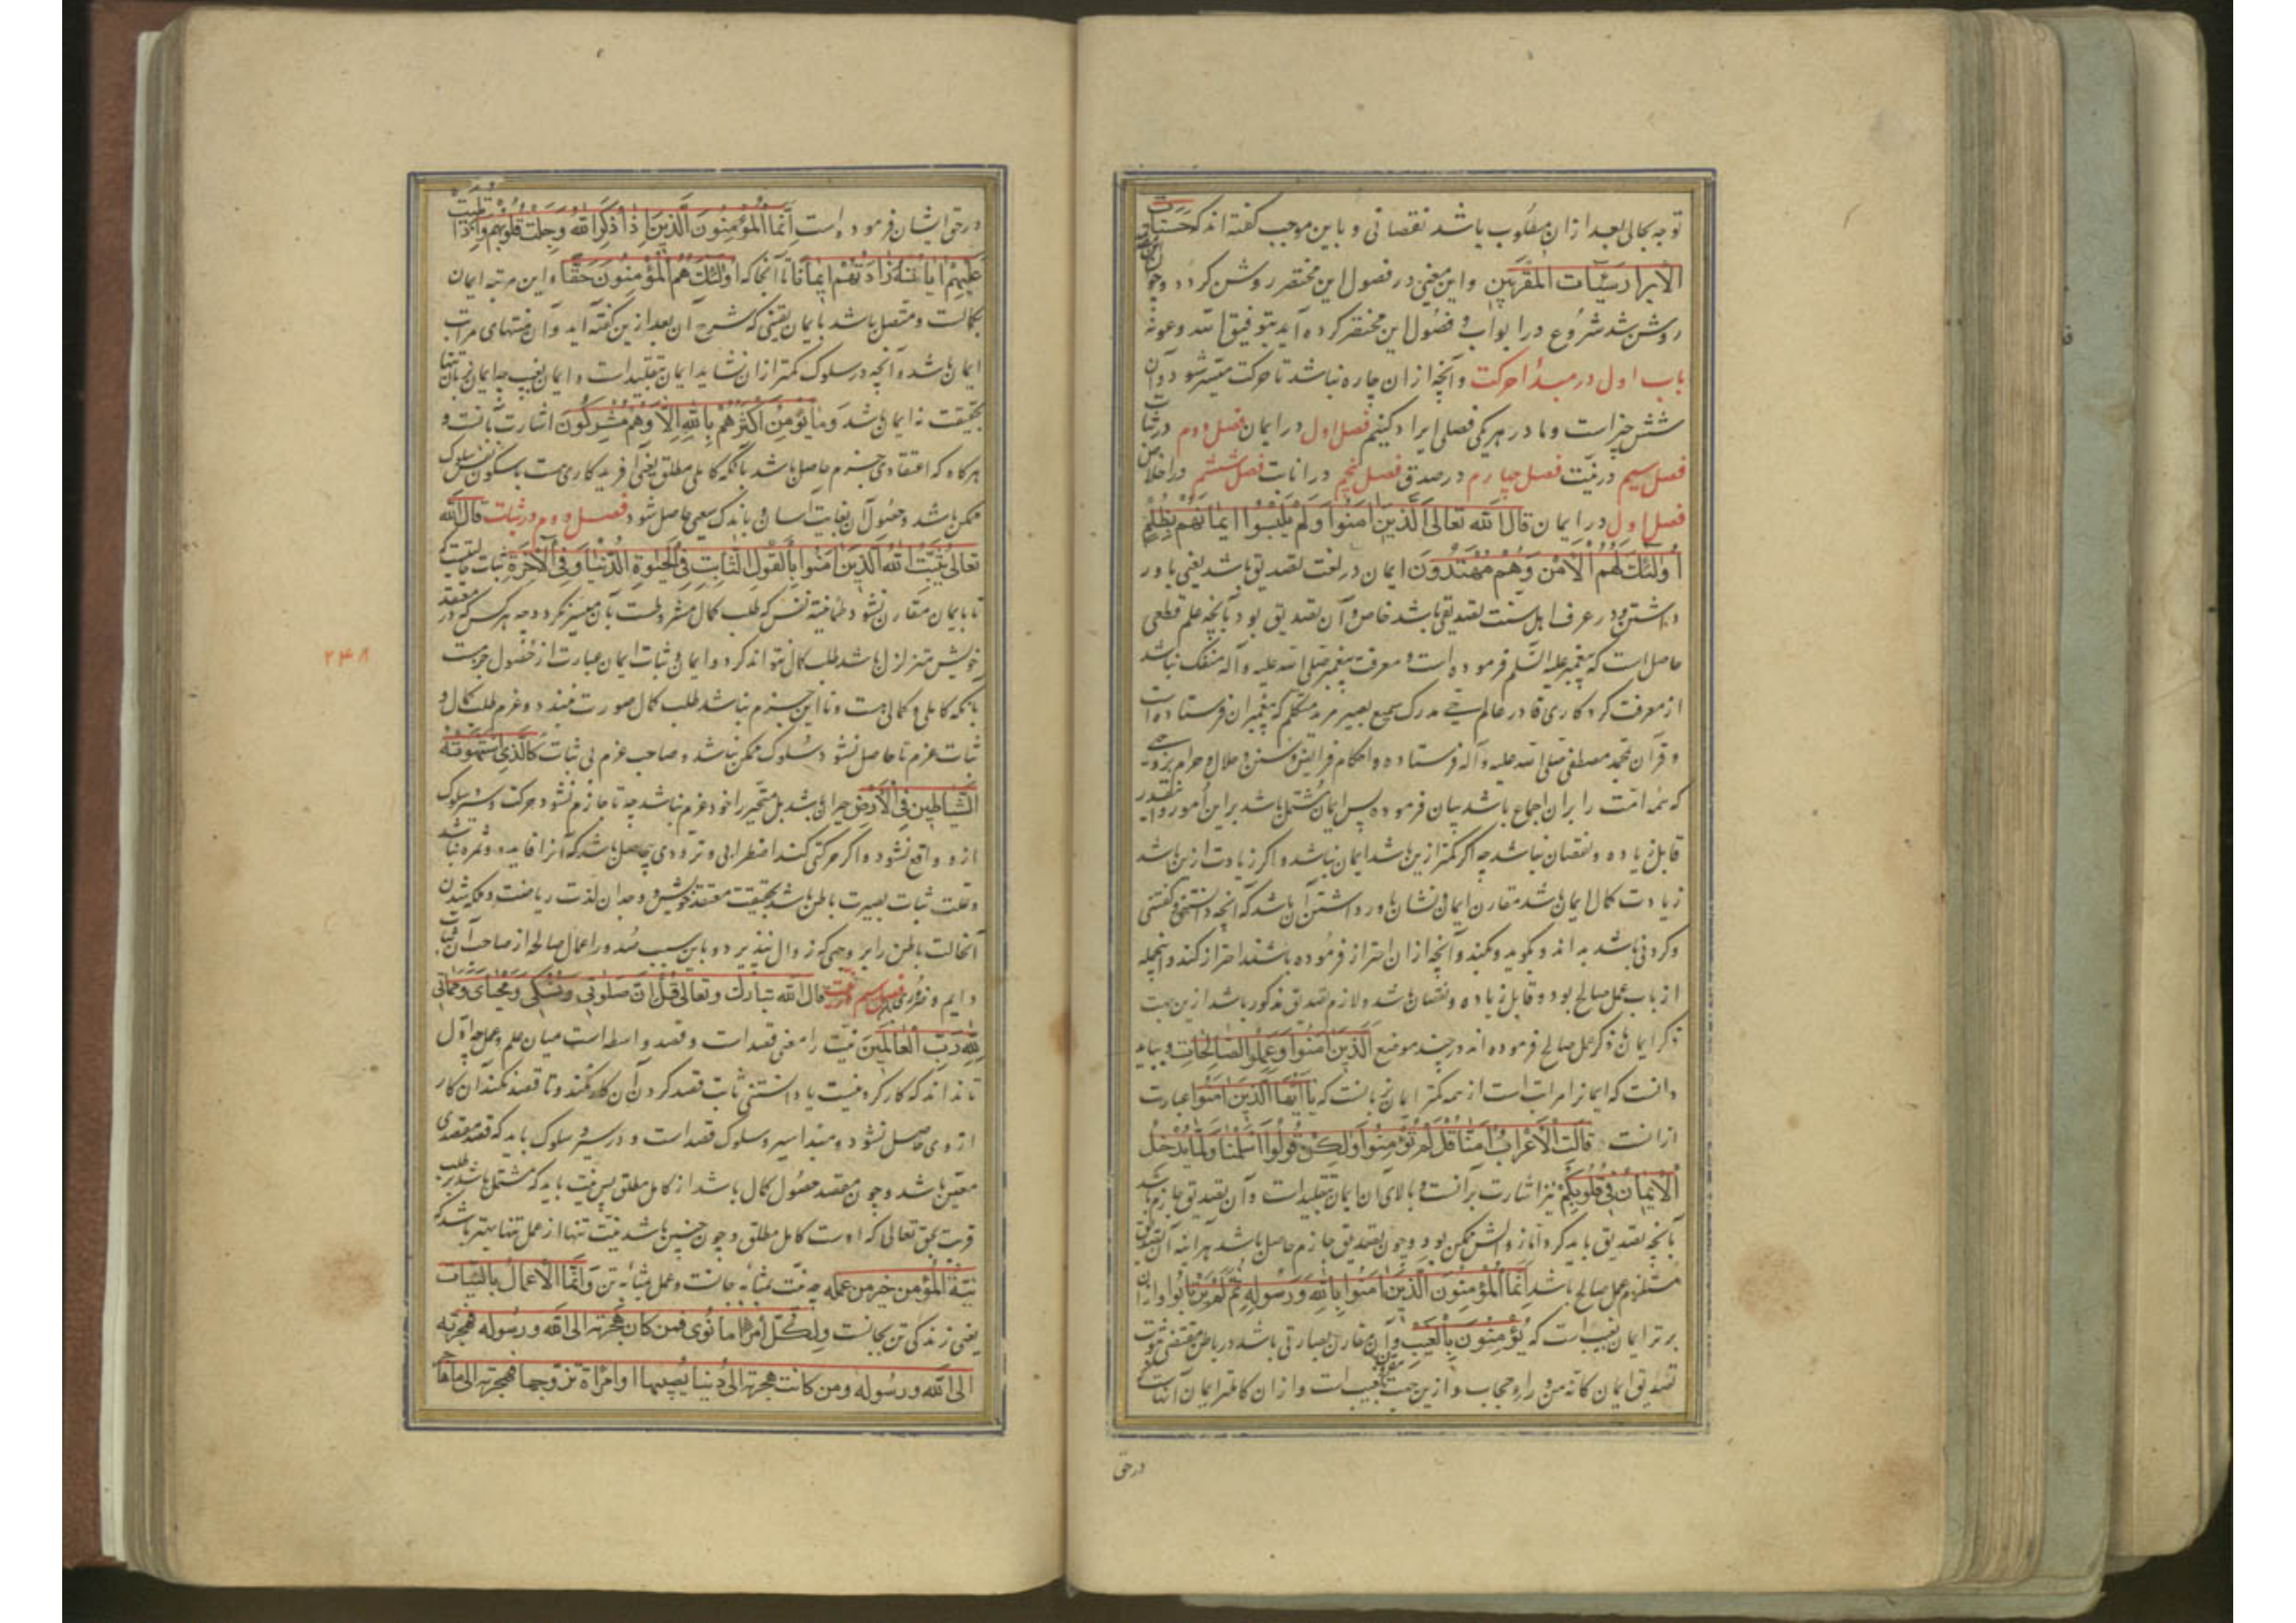 توجه بحالی بعد ازان مطلوب باشد نقصانی و باین موجب گفته‌اند که حسنات
الابرار سیّئات المقربین و این معنی در فصول این مختصر روشن گردد و چون
روشن شد شروع در ابواب و فصول این مختصر کرده آید بتوفیق الله و عونه
باب اول در مبدأ حرکت و آنچه ازان چاره نباشد تا حرکت میسّر شود و آن
شش چیز است و ما در هر یکی فصلی ایراد کنیم فصل اول در ایمان فصل دوم در ثبات
فصل سیم در نیّت فصل چهارم در صدق فصل پنجم در انابت فصل ششم در اخلاص
فصل اول در ایمان قال الله تعالی الَّذینَ اٰمَنُوا وَلَمْ یَلْبِسُوا ایمانَهُم بِظُلْمٍ
اُولٰئِكَ لَهُمُ الْاَمْنُ وَهُمْ مُهْتَدُونَ ایمان در لغت تصدیق باشد یعنی باور
داشتن و در عرف اهل سنت تصدیقی باشد خاص و آن تصدیق بود بآنچه علم قطعی
حاصل است که پیغمبر علیه السّلم فرموده است و معرفت پیغمبر صلی الله علیه و آله منفک نباشد
از معرفت کردکاری قادر عالم حی مدرک سمیع بصیر مرید متکلم که پیغمبران فرستاده است
و قرآن بمحمد مصطفی صلی الله علیه و آله فرستاده و احکام فرایض و سنن و حلال و حرام بروجهی
که همه امّت را بران اجماع باشد بیان فرموده پس ایمان مشتمل باشد بر این امور و این قدر
قابل زیاده و نقصان نباشد چه اگر کمتر ازین باشد ایمان نباشد و اگر زیادت ازین باشد
زیادت کمال ایمان باشد مقارن ایمان و نشان باور داشتن آن باشد که آنچه دانستنی و گفتنی
و کردنی باشد بداند و بگوید و بکند و آنچه ازان احتراز فرموده باشند احتراز کند و اینجمله
از باب عمل صالح بود و قابل زیاده و نقصان باشد و لازم تصدیق مذکور باشد ازین جهت
ذکر ایمان با ذکر عمل صالح فرموده‌اند در چند موضع الَّذینَ اٰمَنُوا وَعَمِلُوا الصّالِحاتِ و بباید
دانست که ایمانرا مراتب است از همه کمتر ایمان بزبانست که یا اَیُّهَا الَّذینَ اٰمَنُوا عبارت
ازانست قالَتِ الْاَعْرابُ اٰمَنّا قُلْ لَمْ تُؤْمِنُوا وَلٰکِنْ قُولُوا اَسْلَمْنا وَلَمّا یَدْخُلِ
الْایمانُ فی قُلُوبِکُمْ نیز اشارت برآنست و بالای آن ایمان تقلید است و آن تصدیق جازم باشد
بآنچه تصدیق باید کرد اما زوالش ممکن بود و چون تصدیق جازم حاصل باشد هرآینه آن تصدیق
مستلزم عمل صالح باشد اِنَّمَا الْمُؤْمِنُونَ الَّذینَ اٰمَنُوا بِاللّٰهِ وَرَسُولِهِ ثُمَّ لَمْ یَرْتابُوا و ازان
برتر ایمان بغیب است که یُؤْمِنُونَ بِالْغَیْبِ و آن مقارن بصارتی باشد در باطن مقتضی ثبوت
تصدیق ایمان کانه من وراء حجاب و ازین جهت مقرون بغیب است و ازان کاملتر ایمان آنان است
درحق
درحق ایشان فرموده است اِنَّمَا الْمُؤْمِنُونَ الَّذینَ اِذا ذُکِرَ اللّٰهُ وَجِلَتْ قُلُوبُهُمْ وَاِذا تُلِیَتْ
عَلَیْهِمْ اٰیاتُهُ زادَتْهُمْ ایماناً تا آنجا که اُولٰئِكَ هُمُ الْمُؤْمِنُونَ حَقّاً و این مرتبه ایمان
بکمالست و متصل باشد بایمان یقینی که شرح آن بعد ازین گفته آید و آن منتهای مراتب
ایمان باشد و آنچه در سلوک کمتر ازان نشاید ایمان تقلید است و ایمان بغیب چه ایمان بزبان تنها
بحقیقت نه ایمان باشد وَما یُؤْمِنُ اَکْثَرُهُمْ بِاللّٰهِ اِلّا وَهُمْ مُشْرِکُونَ اشارت بآنست و
هرگاه که اعتقادی جزم حاصل باشد بآنکه کاملی مطلق یعنی آفریدگاری هست با سکون نفس سلوک
ممکن باشد و حصول آن بغایت آسان و باندک سعی حاصل شود فصل دوم در ثبات قال الله
تعالی یُثَبِّتُ اللّٰهُ الَّذینَ اٰمَنُوا بِالْقَوْلِ الثّابِتِ فِی الْحَیٰوةِ الدُّنْیا وَفِی الْاٰخِرَةِ ثبات حالتیست که
تا بایمان مقارن نشود طمأنینة نفس که طلب کمال مشروطست بآن میسر نگردد چه هر کس که در معتقد
خویش متزلزل باشد طلب کمال نتواند کرد و ایمان و ثبات ایمان عبارت از حصول جزمست
بآنکه کاملی و کمالی هست و تا این جزم نباشد طلب کمال صورت نبندد و عزم طلب کمال و
ثبات عزم تا حاصل نشود سلوک ممکن نباشد و صاحب عزم بی ثبات کَالَّذِی اسْتَهْوَتْهُ
الشَّیاطینُ فِی الْاَرْضِ حیران باشد بل متحیر را خود عزم نباشد چه تا جازم نشود حرکت و سیر و سلوک
ازو واقع نشود و اگر حرکتی کند اضطرابی و ترددی بیحاصل باشد که آنرا فایده و ثمره نباشد
و علت ثبات بصیرت باطن باشد بحقیقت معتقد خویش و وجدان لذت ریاضت و ملکه شدن
آنحالت باطن را بر وجهی که زوال نپذیرد و باین سبب صدور اعمال صالحه از صاحب آن ثبات
دایم و ضروری باشد فصل سیم در نیت قال الله تبارك وتعالی قُلْ اِنَّ صَلٰوتی وَنُسُکی وَمَحْیایَ وَمَماتی
لِلّٰهِ رَبِّ الْعالَمینَ نیّت را معنی قصد است و قصد واسطه است میان علم و عمل چه اوّل
تا نداند که کار کردنیست یا دانستنی ثابت قصد کردن آن کار نکند و تا قصد نکند آن کار
از وی حاصل نشود و مبدأ سیر و سلوک قصد است و در سیر و سلوک باید که قصد مقصدی
معین باشد و چون مقصد حصول کمال باشد از کامل مطلق پس نیت باید که مشتمل باشد بر طلب
قربت بحق تعالی که اوست کامل مطلق و چون چنین باشد نیّت تنها از عمل تنها بهتر باشد که
نیّةُ المُؤمن خیر من عمله چه نیت بمثابه جانست و عمل بمثابه تن وَاِنَّمَا الْاَعْمالُ بِالنِّیّاتِ
یعنی زندگی تن بجانست ولکلّ امرئٍ ما نوی فمن کان هجرته الی الله و رسوله فهجرته
الی الله و رسوله و من کانت هجرته الی دنیا یصیبها او امرأة تزوجها فهجرته الی ما هاجر
۲۴۸